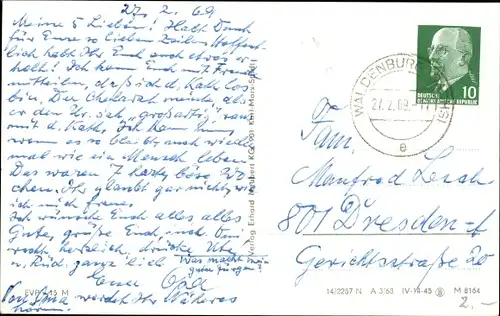 27. 2. 69
Meine 5 Lieben! Habt Dank
für Eure so lieben Zeilen. Hoffent-
lich habt Ihr Euch auch etwas er-
holt! Ich kann Euch mit Freude
mitteilen, daß ich d. Kath. los
bin. Der Chefarzt meinte, also
er den Ihr. sich "großartig" ganz
mit d. Kath. Ich kann nun,
wenn es so bleibt, auch wieder
mal wie ein Mensch leben.
Das waren 7 harte böse Wo-
chen. Ihr glaubt gar nicht, wie
ich mich freue.
Ich wünsche Euch alles alles
Gute, grüße Euch, auch
recht herzlich, drücke
u. ganz lieb
Was macht mein
Euer Opa
werdet Ihr Näheres
hören.
EVP M
Verlag Erhard Neubert KG Karl-Marx-Stadt
WALDENBURG (SACHS)
27.2.69
e
DEUTSCHE
DEMOKRATISCHE REPUBLIK
10
Fam.
Manfred Lesch
801 Dresden-A
Gerichtsstraße 20
14/2257 N A 3/63 IV-14-45 M 8164
2.-